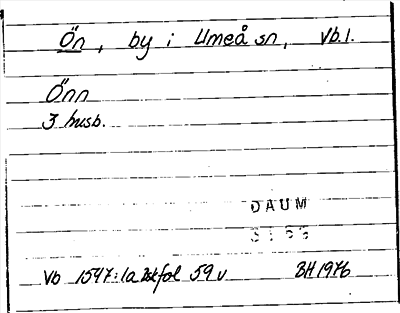 Ön, by i Umeå sn, Vb.l.
Önn
3 husb.
DAUM
Vb 1547:1a fol 59 v BH 1976